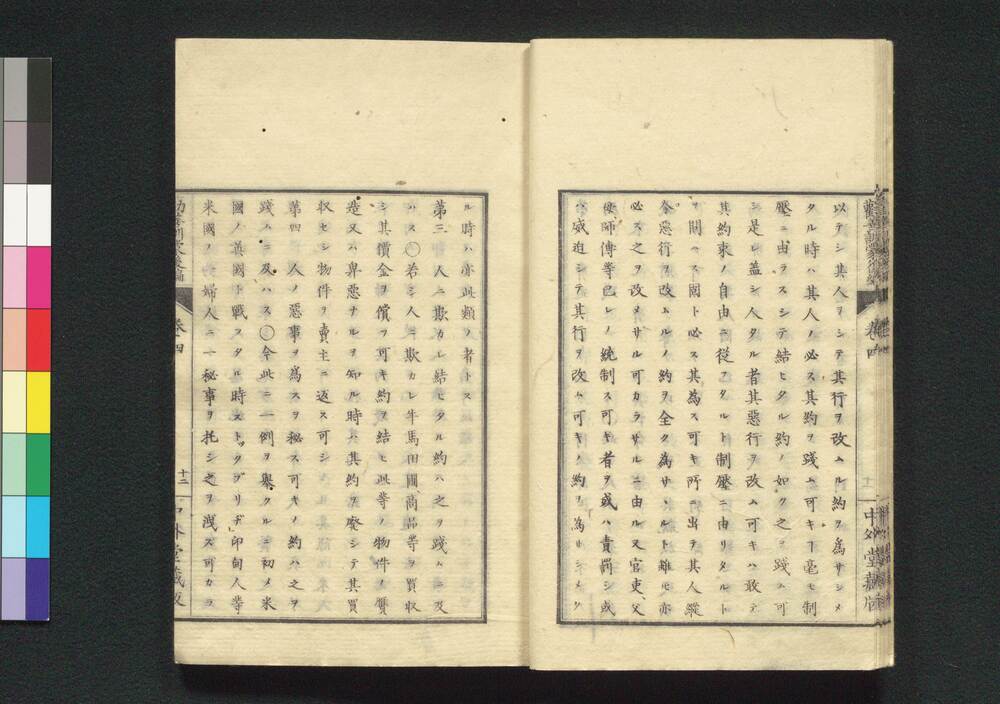 勸善訓蒙後編
卷四
中外堂藏版
以テシ其人ヲシテ其行ヲ改ムルノ約ヲ為サシメ
タル時ハ其人ノ必ス其約ヲ踐ム可キヿ毫モ制
壓ニ由ラスシテ結ヒタル約ノ如ク之ヲ踐ム可
シ是レ蓋シ人タル者其惡行ヲ改ム可キハ敢テ
其約束ノ自由ニ從ヿタルト制壓ニ由リタルト
ヲ問ハス固ト必ス其為ス可キ所ニ出テ其人縱
令惡行ヲ改ムルノ約ヲ全ク為サヽルト雖モ亦
必ス之ヲ改メサル可カラサルニ由ル又官吏、父
母師傅等己レノ統制ス可キ者ヲ或ハ責罰シ或
ハ威迫シテ其行ヲ改ム可キノ約ヲ為ルシメタ
ル時ハ亦此類ノ者トス
第三 人ニ欺カレ結ヒタル約ハ之ヲ踐ムニ及
ハス〇若シ人ニ欺カレ牛馬田園商品等ヲ買収
シ其價金ヲ償フ可キ約ヲ結ヒ此等ノ物件ノ贋
造又ハ鼻惡ナルヲ知ル時ハ其約ヲ廢シテ其買
収セシ物件ヲ賣主ニ返ス可シ
第四 人ノ惡事ヲ為スヲ秘ス可キノ約ハ之ヲ
踐ムニ及ハス〇今此ニ一例ヲ擧クルニ初メ米
國ノ英國ト戰フタル時ストックブリヂ印甸人等
米國ノ一婦人ニ一秘事ヲ托シ之ヲ洩ス可カラ
卷四
十二
中外堂藏版